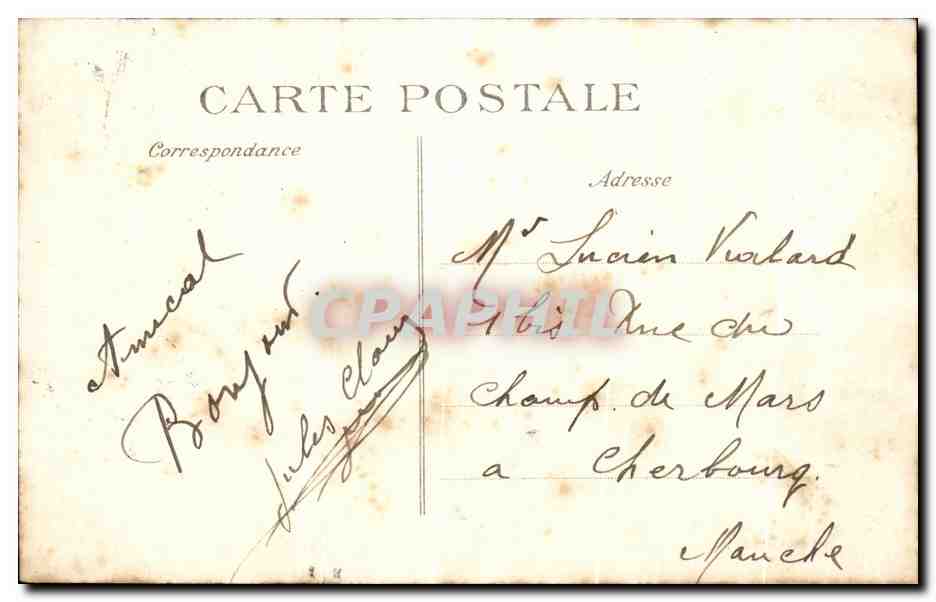 CARTE POSTALE
Correspondance
Adresse
Amical
Bonjour
Jules
Mr Lucien Vialard
1 bis Rue du
Champ. de Mars
a Cherbourg.
Manche
CPAPHIL